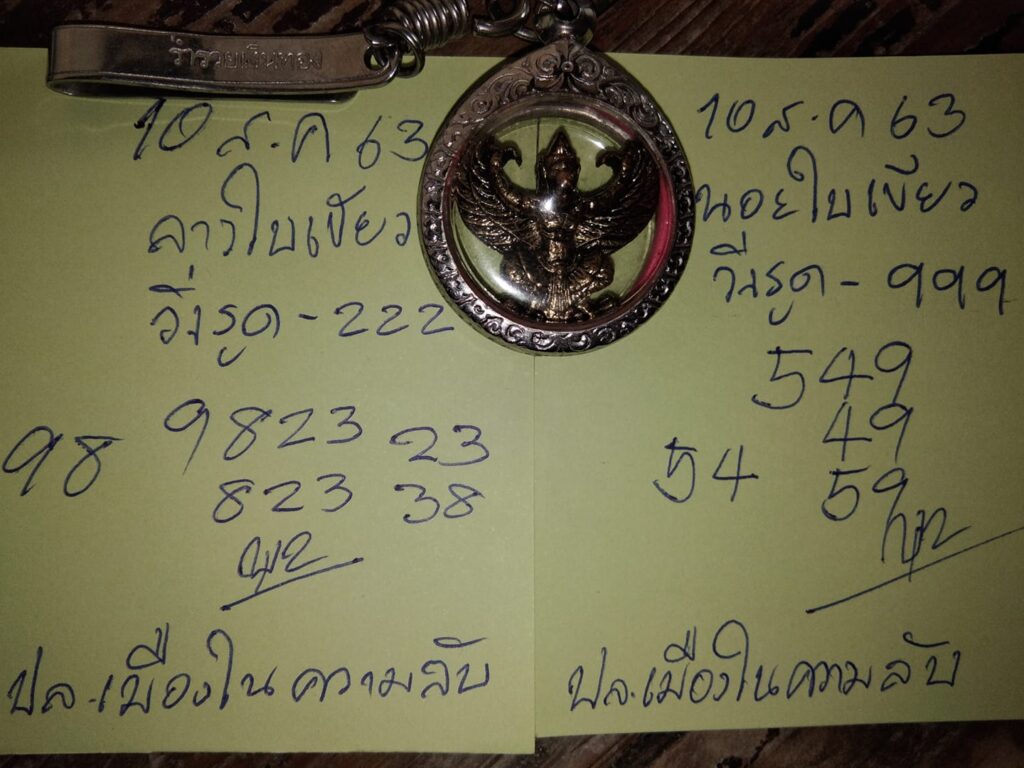 ร่ำรวยเงินทอง
10 ส.ค 63
ลาวใบเขียว
วิ่งรูด - 222
9823 23
98
823 38
ปล.เมืองในความลับ
10 ส.ค 63
นอยใบเขียว
วิ่งรูด - 999
549
49
54 59
ปล.เมืองในความลับ